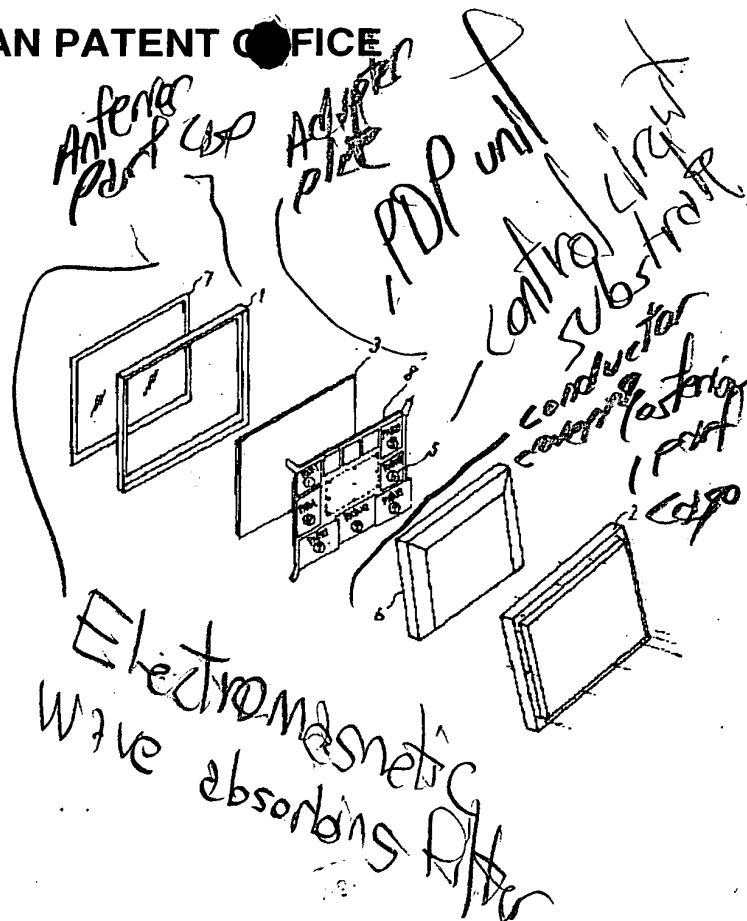 AN PATENT OFFICE
Anterior part case
Adapter plate
PDP unit
control circuit
substrate
conductor
covering
Posterior
part
case
7
1
3
8
4
5
2
6
Electromagnetic
Wave absorbing filter